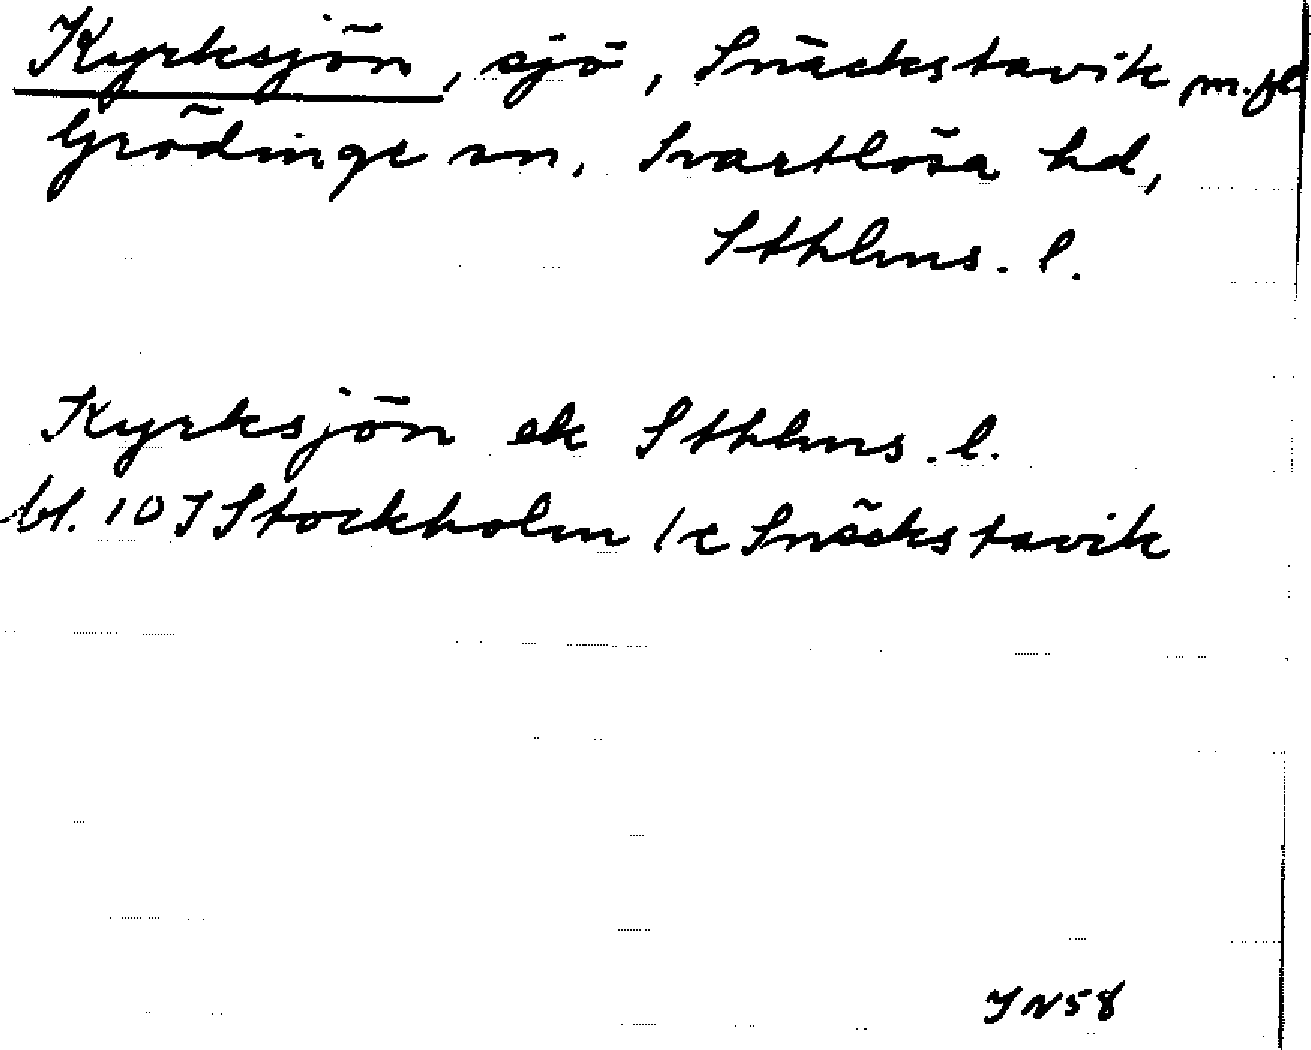 Kyrksjön, sjö, Snäckstavik m.fl
Grödinge sn, Svartlösa hd,
Sthlms. l.
Kyrksjön ek Sthlms. l.
bl. 10I Stockholm /c Snäckstavik